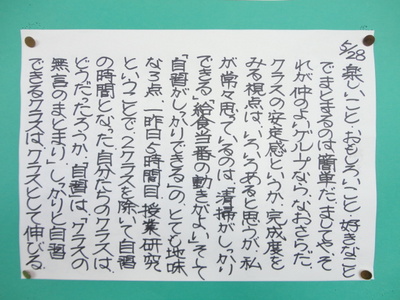 5/28 楽しいこと、おもしろいこと、好きなこと
でまとまるのは簡単だ。ましてや、そ
れが仲のよいグループならなおさらだ。
クラスの安定感というか、完成度を
みる視点は、いろいろあると思うが、私
が常々思っているのは、「清掃がしっかり
できる」「給食当番の動きがよい」そして
「自習がしっかりできる」の、とても地味
な3点。一昨日5時間目、授業研究
ということで、2クラスを除いて自習
の時間となった。自分たちのクラスは、
どうだったろうか。自習は、「クラスの
無言のまとまり」。しっかりと自習
できるクラスは、クラスとして伸びる。